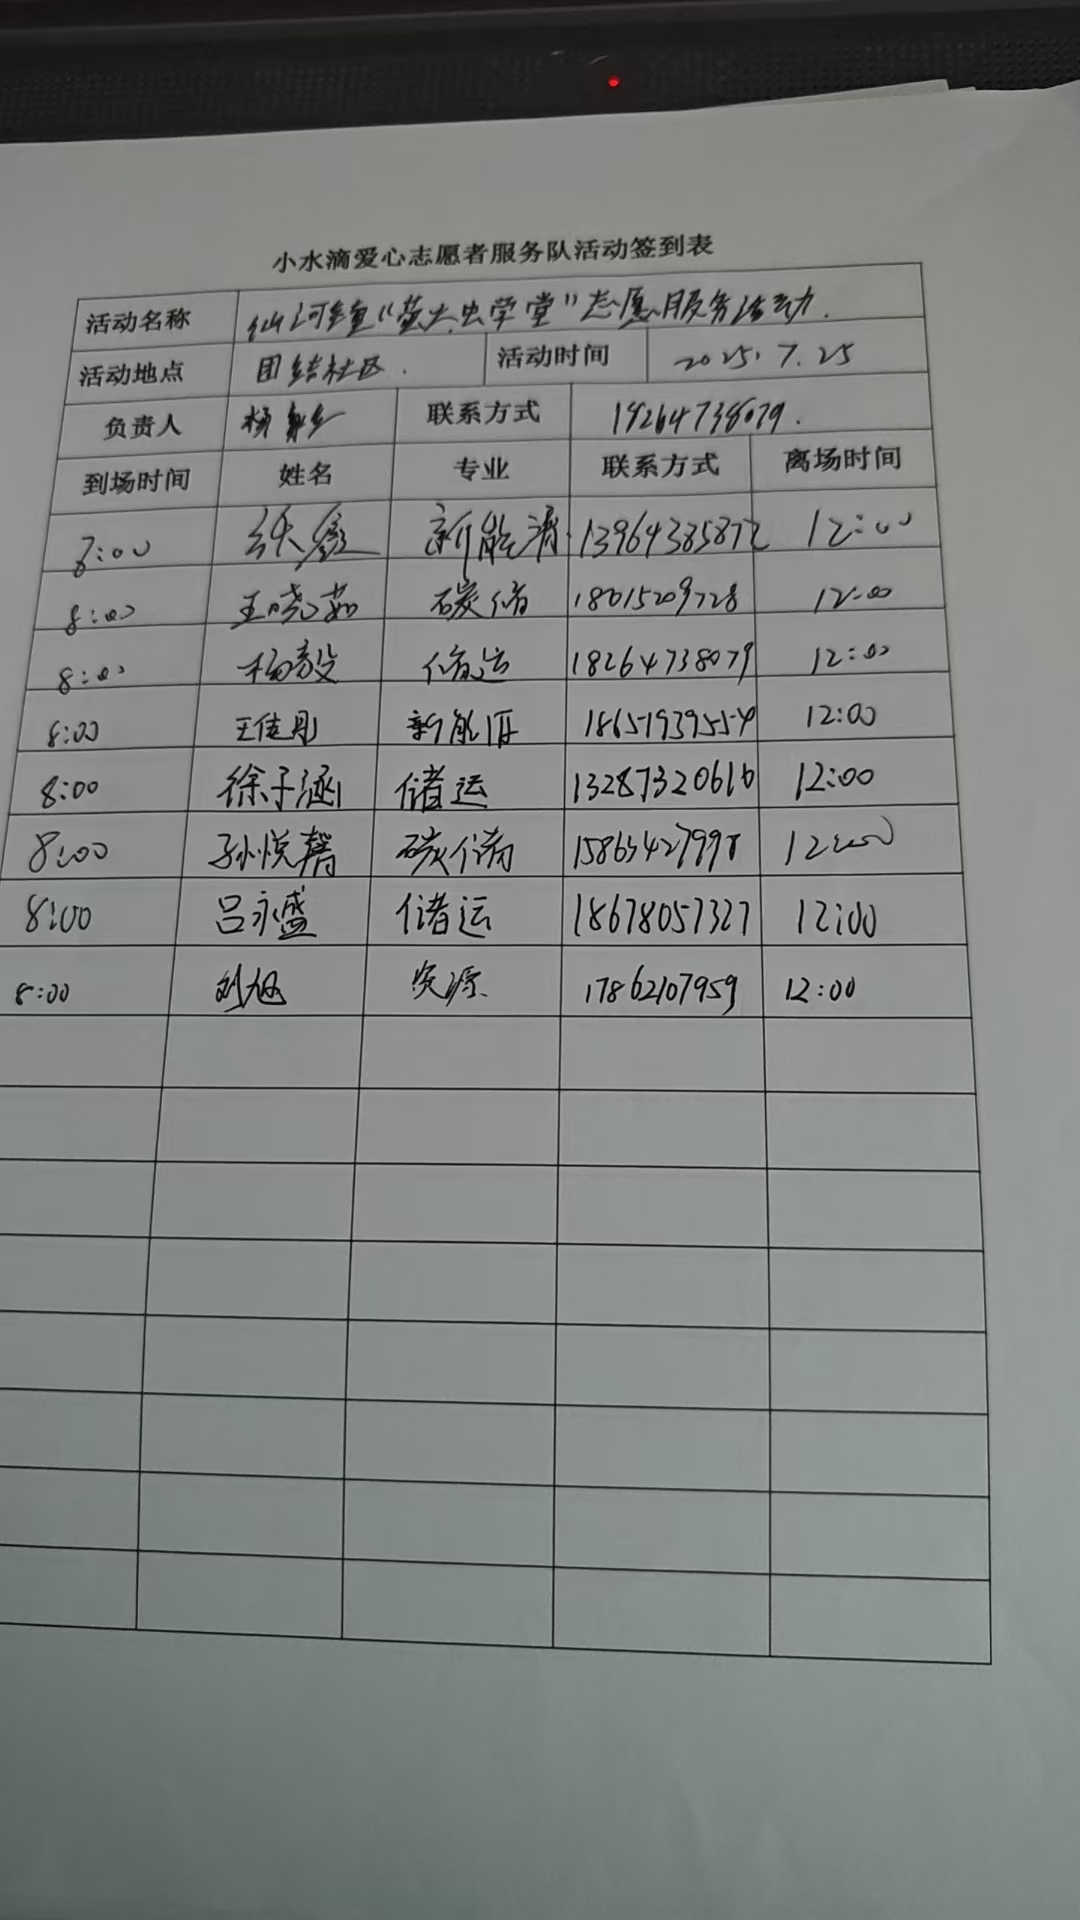 小水滴爱心志愿者服务队活动签到表
活动名称 仙河镇“萤火虫学堂”志愿服务活动.
活动地点 团结社区. 活动时间 2025.7.25
负责人 杨 联系方式 18264738079.
到场时间 姓名 专业 联系方式 离场时间
8:00 张鑫 新能源 13964385872 12:00
8:00 王晓茹 碳储 18615209728 12:00
8:00 杨毅 储运 18264738079 12:00
8:00 王佳彤 新能源 18651939554 12:00
8:00 徐子涵 储运 13287320616 12:00
8:00 孙悦馨 碳储 15863427998 12:00
8:00 吕永盛 储运 18678057327 12:00
8:00 刘旭 资源 17862107959 12:00